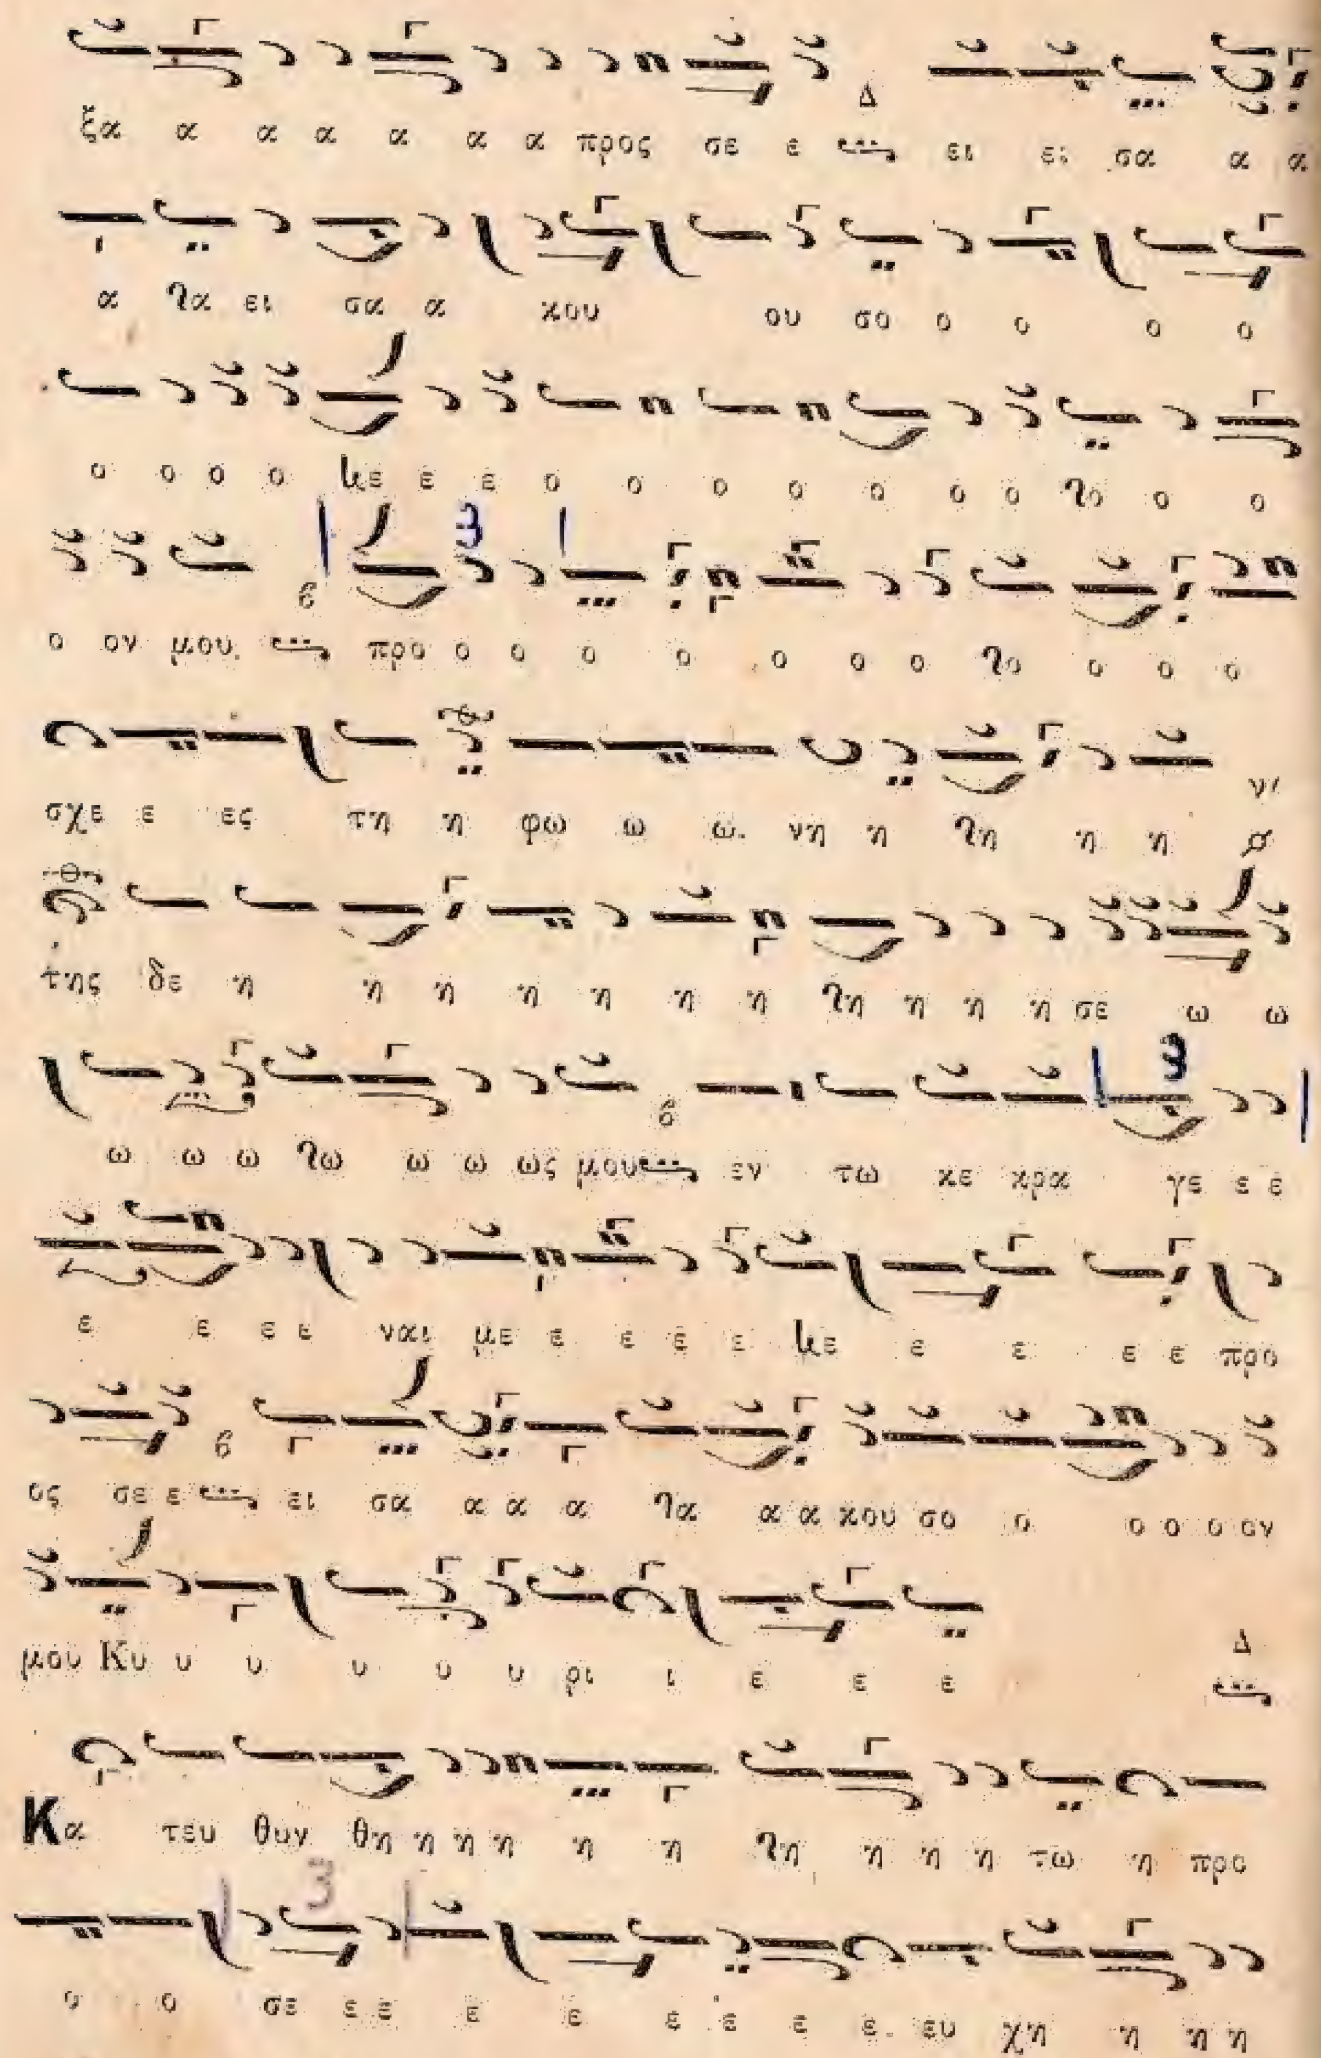 ξα α α α α α α προς σε ε Δ ει ει σα α α
α γα ει σα α κου ου σο ο ο ο ο
ο ο ο ο κε ε ε ο ο ο ο ο ο ο γο ο ο
ο ον μου. 6 3 προ ο ο ο ο ο ο ο γο ο ο ο
σχε ε ες τη η φω ω ω. νη η γη η η
της δε η η η η η η η γη η η η σε ω ω
ω ω ω γω ω ω ως μου 6 εν τω κε κρα 3 γε ε ε
ε ε ε ε ναι με ε ε ε ε κε ε ε ε ε προ
ος σε ε 6 ει σα α α α γα α α κου σο ο ο ο ο ον
μου Κυ υ υ υ υ υ ρι ι ε ε ε Δ
Κα τευ θυν θη η η η η η γη η η η τω η προ
ο ο σε 3 ε ε ε ε ε ε ε ε. ευ χη η η η